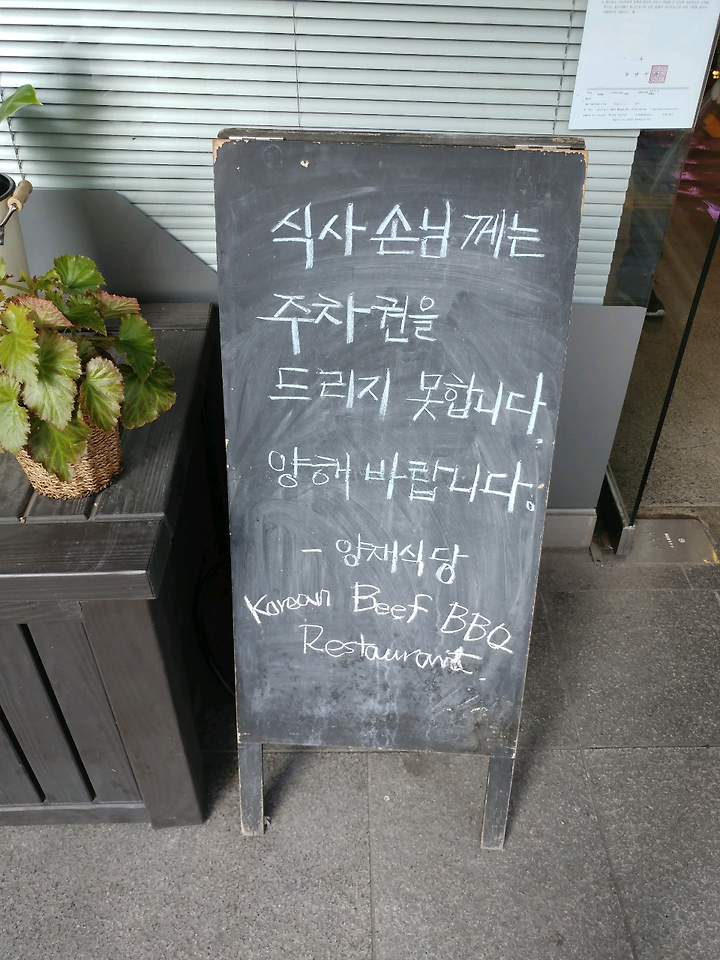 식사 손님 께는
주차권을
드리지 못합니다.
양해 바랍니다.
- 양재식당
Korean Beef BBQ
Restaurant.